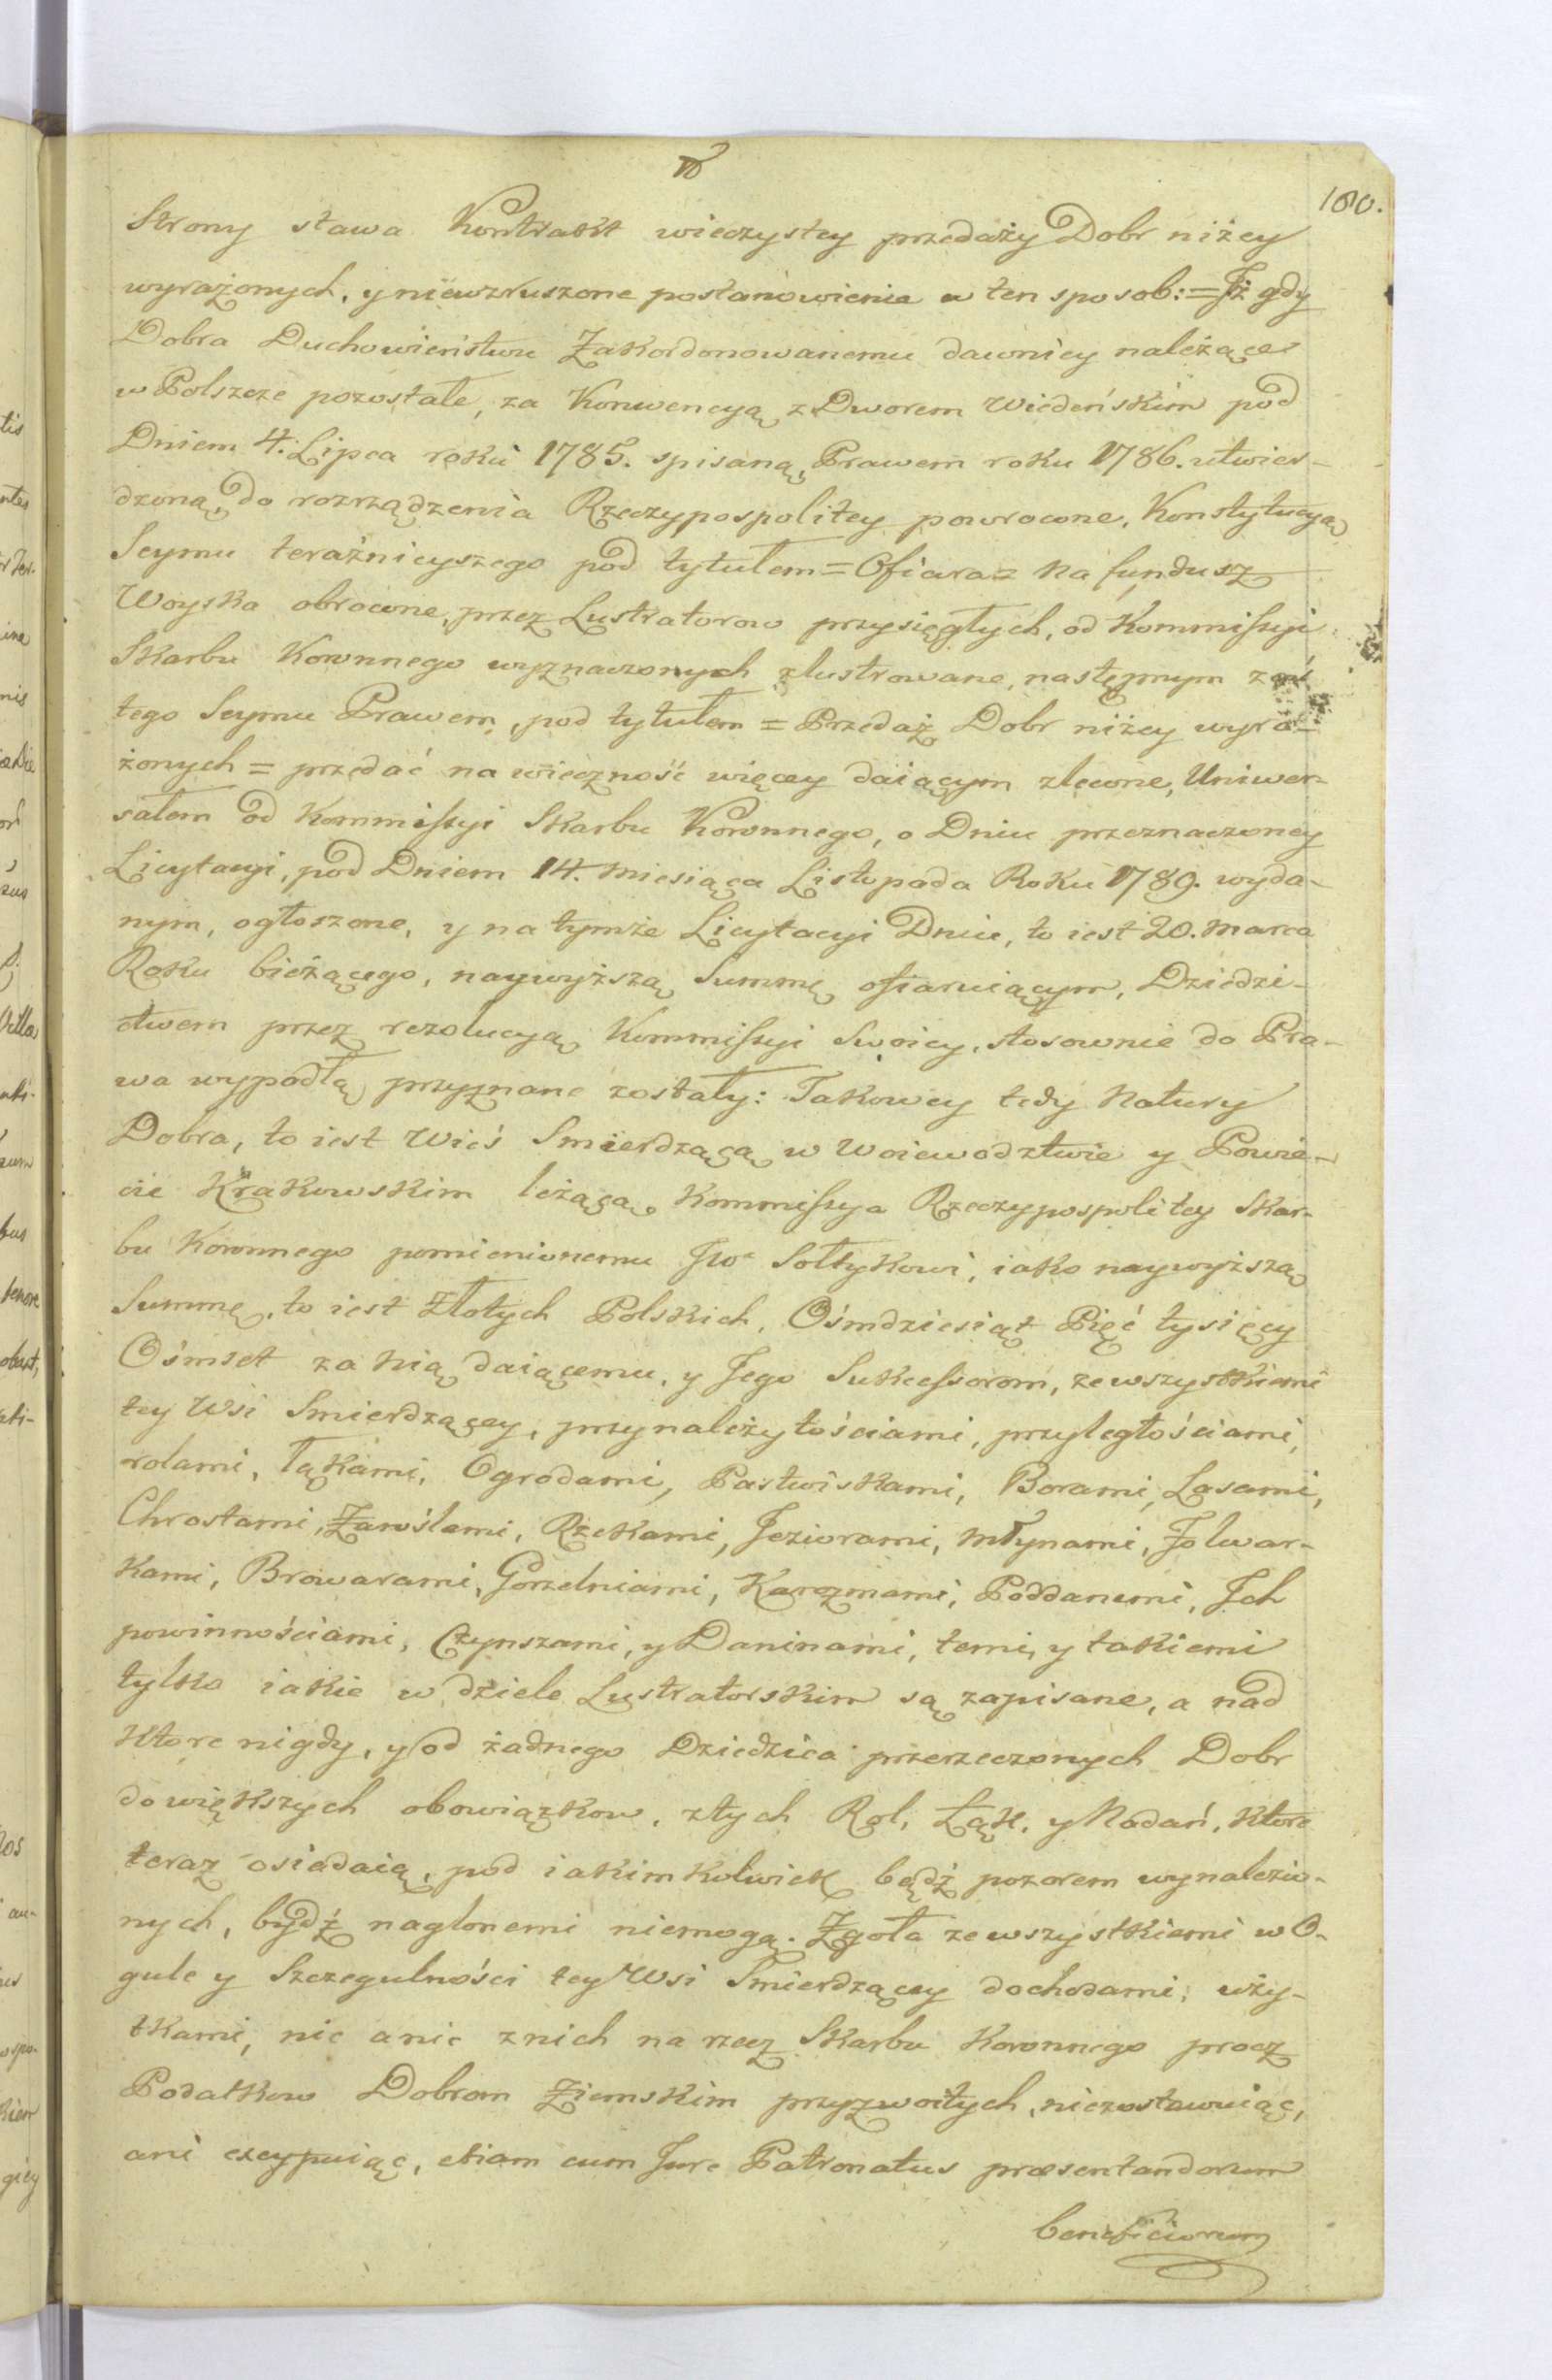 180.
Strony stawa Kontrakt wieczystey przedaży Dobr niżey
wyrażonych, y niewzruszone postanowienie w ten sposob: = Iż gdy
Dobra Duchowieństwu Zakordonowanemu dawniey należące
w Polszcze pozostałe, za Konwencyą z Dworem Wiedeńskim pod
Dniem 4. Lipca roku 1785. spisaną, Prawem roku 1786. utwier-
dzoną, do rozrządzenia Rzeczypospolitey powrocone, Konstytucyą
Seymu teraźnieyszego pod tytułem = Ofiara = na fundusz
Woyska obrocone, przez Lustratorow przysięgłych, od Kommissyi
Skarbu Koronnego wyznaczonych zlustrowane, następnym zaś
tego Seymu Prawem, pod tytułem = Przedaż Dobr niżey wyra-
żonych = przedać na wieczność więcey daiącym zlecone, Uniwer-
sałem od Kommissyi Skarbu Koronnego, o Dniu przeznaczoney
Licytacyi, pod Dniem 14. Miesiąca Listopada Roku 1789. wyda-
nym, ogłoszone, y na tymże Licytacyi Dniu, to iest 20. Marca
Roku bieżącego, naywyższą Summę ofiaruiącym, Dziedzi-
ctwem przez rezolucyą Kommissyi Swoiey, stosownie do Pra-
wa wypadłą przyznane zostały: Takowey tedy Natury
Dobra, to iest Wieś Smierdzącą w Woiewodztwie y Powie-
cie Krakowskim leżącą, Kommissya Rzeczypospolitey Skar-
bu Koronnego pomienionemu JW. Sołtykowi, iako naywyższą
Summę, to iest Złotych Polskich, Ośmdziesiąt Pięć tysięcy
Ośmset za nią daiącemu, y Jego Sukcessorom, ze wszystkiemi
tey Wsi Smierdzącey, przynależytościami, przyległościami,
rolami, łąkami, Ogrodami, Pastwiskami, Borami, Lasami,
Chrostami, Zaroślami, Rzekami, Jeziorami, Młynami, Folwar-
kami, Browarami, Gorzelniami, Karczmami, Poddanemi, Ich
powinnościami, Czynszami, y Daninami, temi, y takiemi
tylko iakie w dziele Lustratorskim są zapisane, a nad
ktore nigdy, y od żadnego Dziedzica przerzeczonych Dobr
do większych obowiązkow, z tych Rol, Łąk, y Nadań, ktore
teraz osiadaią, pod iakimkolwiek bądź pozorem wynalezio-
nych, bydź naglonemi niemogą. Zgoła ze wszystkiemi w O-
gule y Szczegulności tey Wsi Smierdzącey dochodami, uży-
tkami, nic a nic z nich na rzecz Skarbu Koronnego procz
Podatkow Dobrom Ziemskim przyzwoitych, niezostawuiąc,
ani excypuiąc, etiam cum Jure Patronatus præsentandorum
beneficiorum